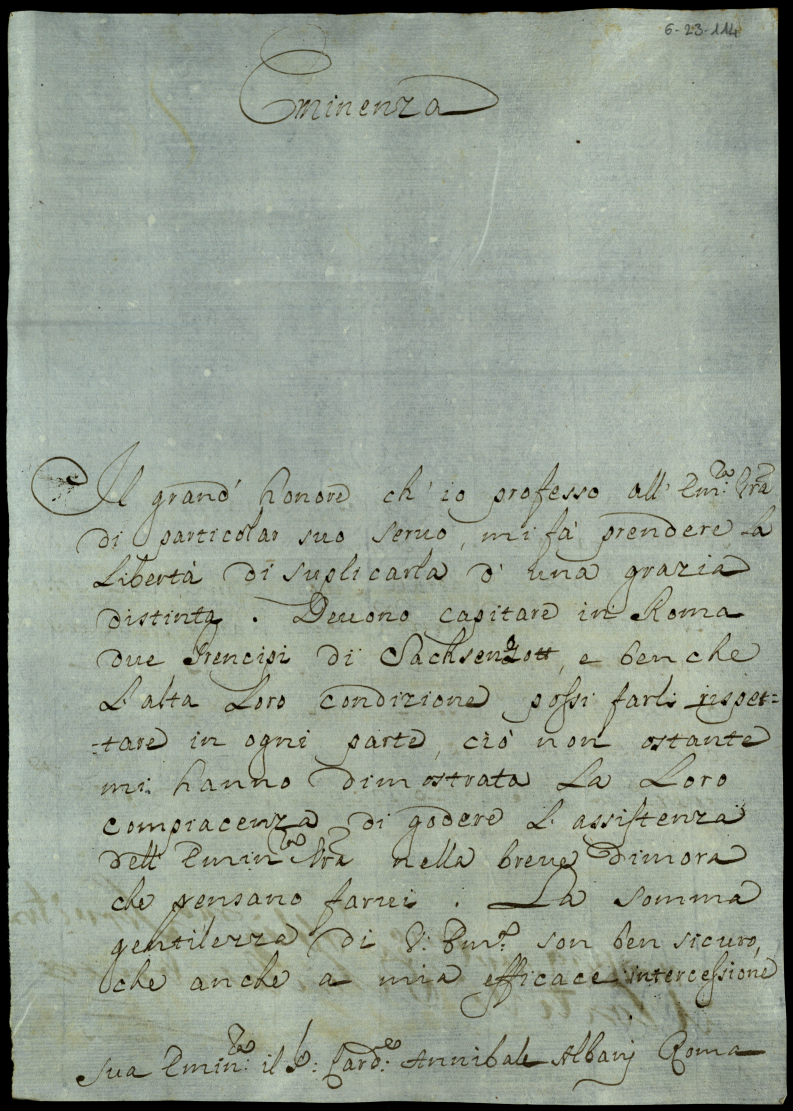 6-23-114
Eminenza
Il grand' honore ch' io professo all' Em:za Vra
di particolar suo seruo, mi fà prendere la
Libertà di suplicarla d' una grazia
distinta. Deuono capitare in Roma
due Prencipi di Sachsengott, e ben che
L'alta Loro condizione possi farli respet=
=tare in ogni parte, ciò non ostante
mi hanno dimostrata La Loro
compiacenza di godere L'assistenza
dell' Emin:za Vra nella breue dimora
che pensano farnei. La somma
gentilezza di V: Em:za son ben sicuro,
che anche a mia efficace intercessione
Sua Emin:za il S: Card:le Annibale Albanj Roma